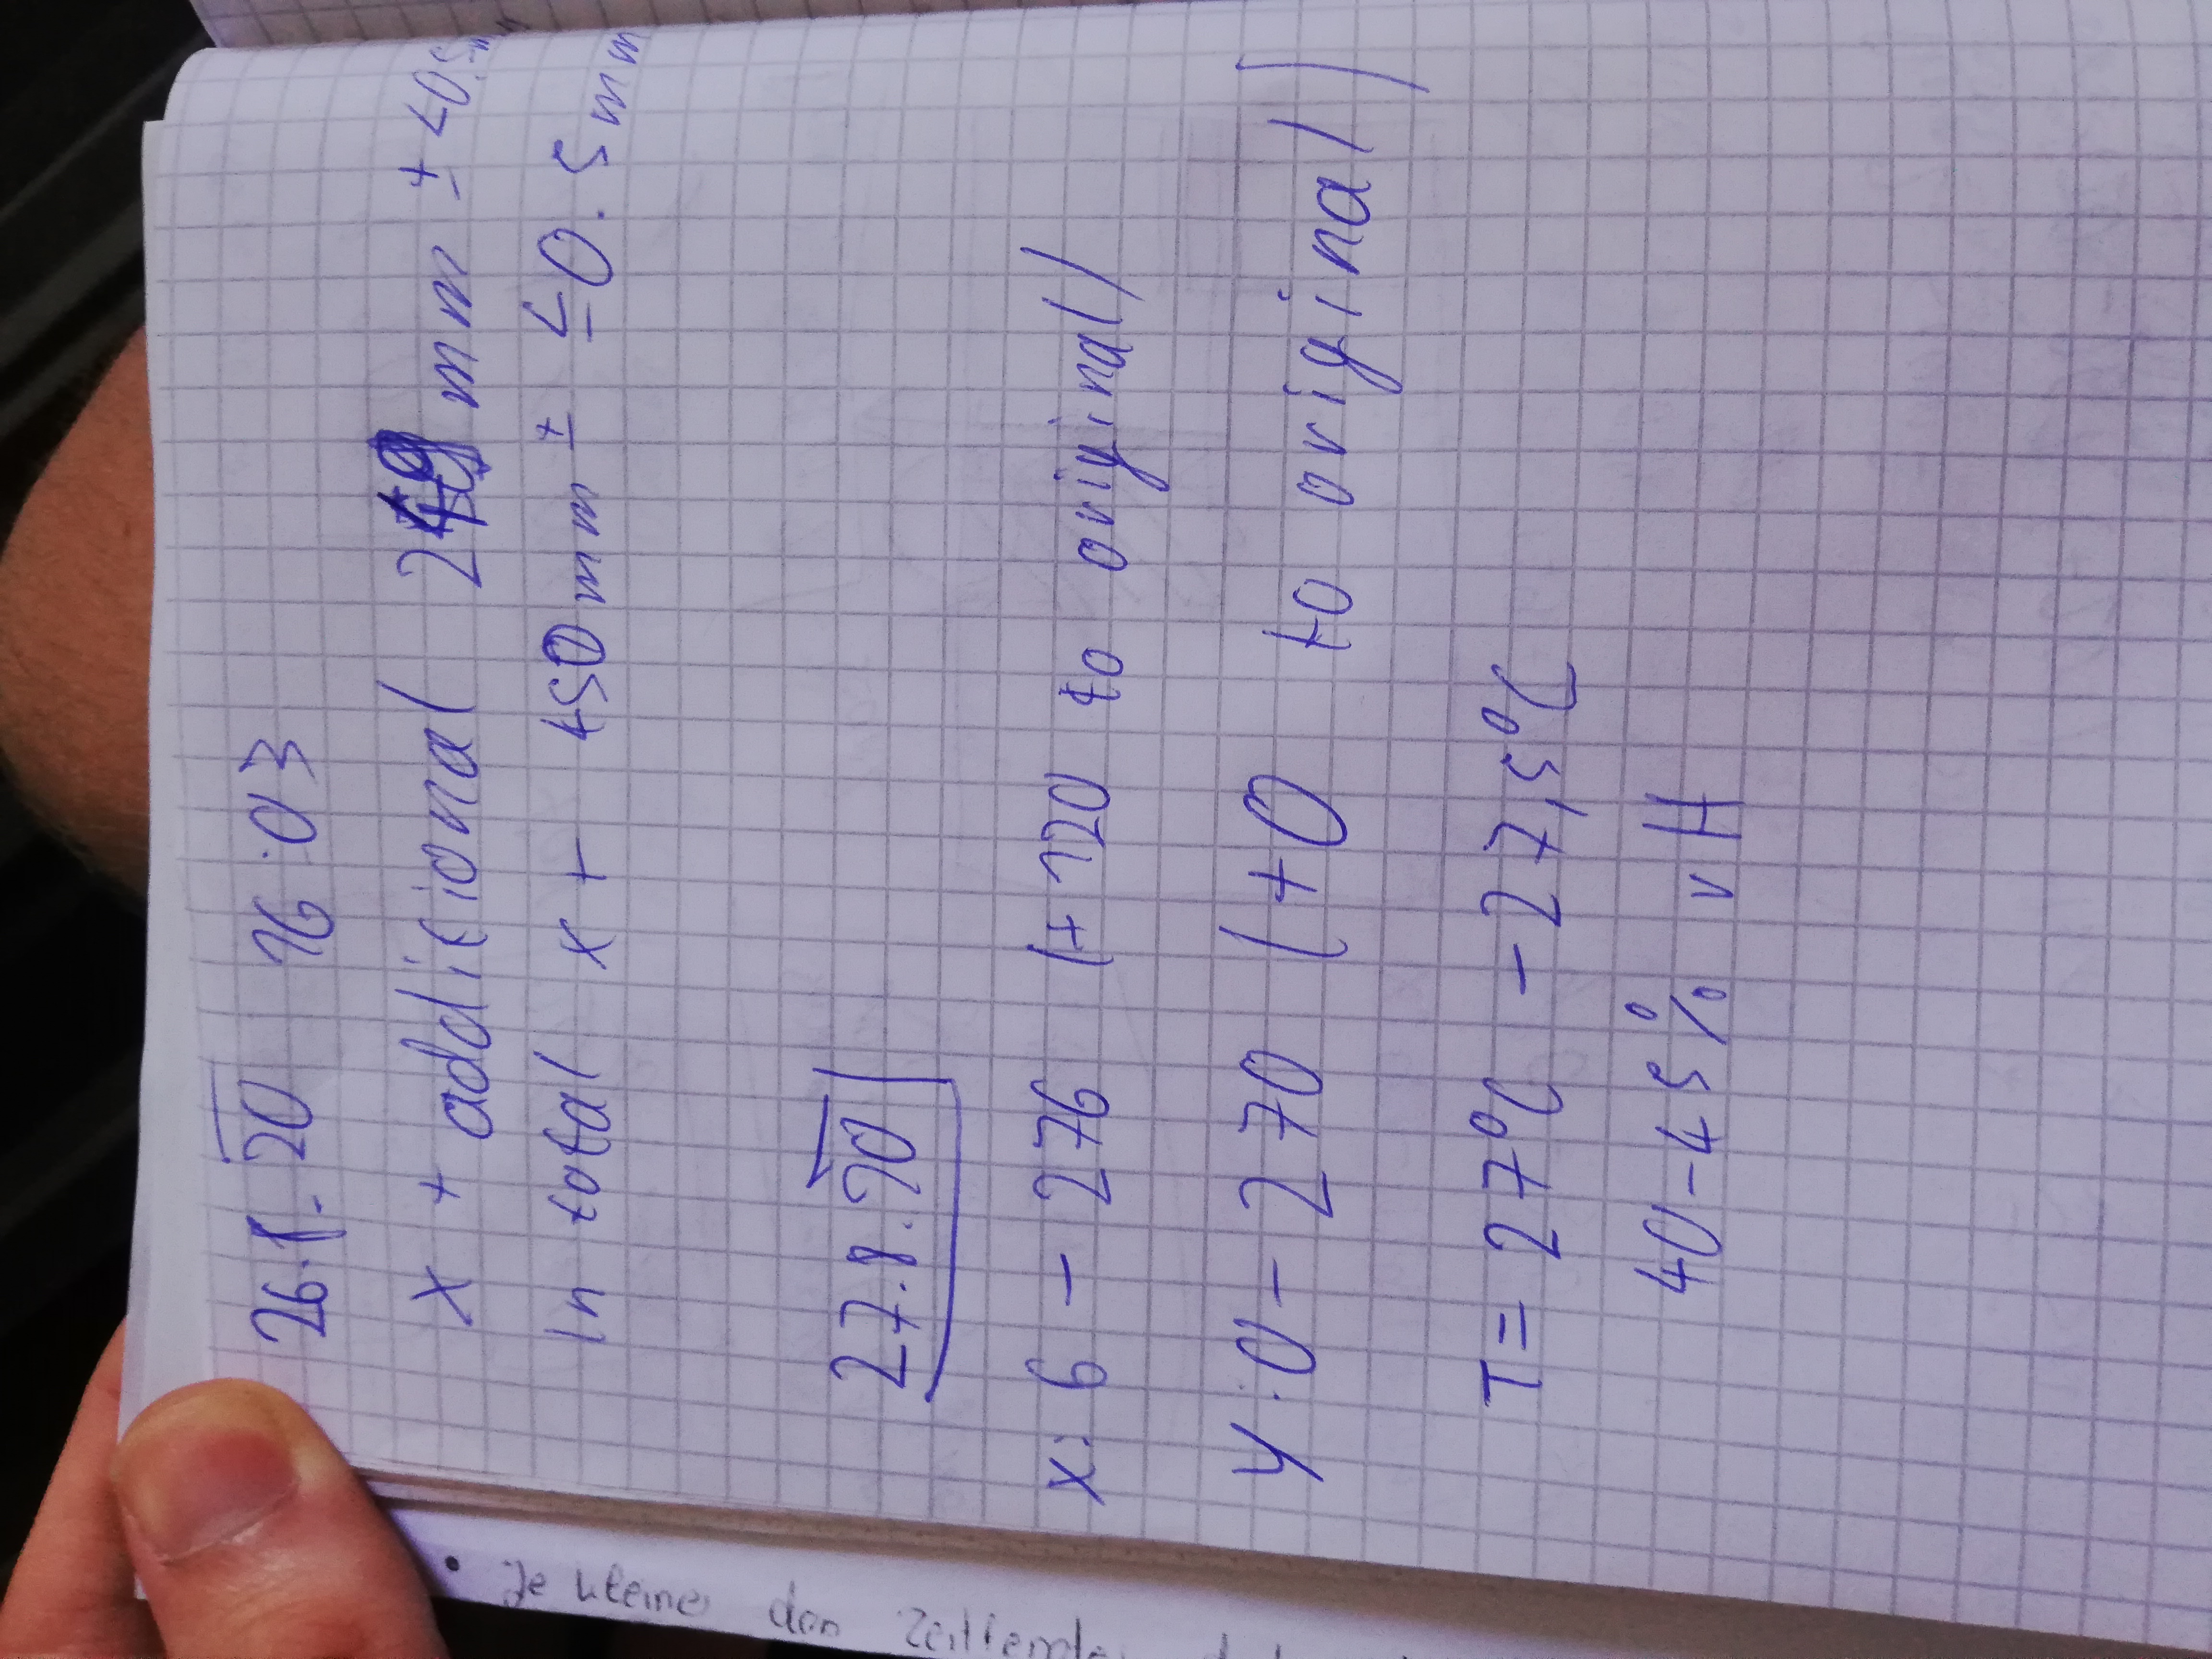 26.8.20 16:03
x + additional 249 mm ± <0.5m
In total x + 450mm ± ≤0.5mm
27.8.20
x: 6 - 276 (+120 to original)
y: 0 - 270 (+0 to original)
T = 27°C - 27,5°C
40-45% rH
• Je kleiner den